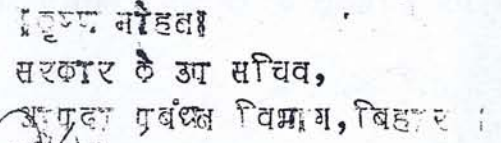 ॥कृष्ण मोहन॥
सरकार के उप सचिव,
आपदा प्रबंधन विभाग, बिहार ।